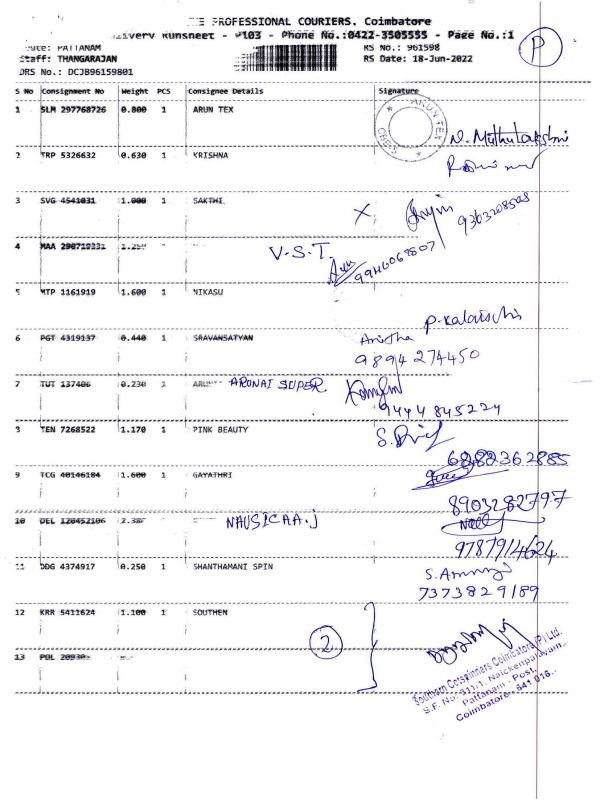 PROFESSIONAL COURIERS. Coimbatore
Runsheet - P103 - Phone No.:0422-3505555 - Page No.:1
P
PATTANAM
RS No.: 961598
Staff: THANGARAJAN
RS Date: 18-Jun-2022
DRS No.: DCJB96159801
S No Consignment No Weight PCS Consignee Details Signature
1 SLM 297768726 0.800 1 ARUN TEX
ARUN TEX
N. Muthulakshmi
2 TRP 5326632 0.630 1 KRISHNA
3 SVG 4541031 1.000 1 SAKTHI
X
9363208508
4 MAA
V.S.T.
9946069807
5 MTP 1161919 1.600 1 NIKASU
P. Kalaiselvi
6 PGT 4319137 0.440 1 SRAVANSATYAN
Anitha
9894274450
7 TUT 137406 0.230 1 ARUNAI SUPER
9444845224
8 TEN 7268522 1.170 1 PINK BEAUTY
9 TCG 40146184 1.600 1 GAYATHRI
8903282797
10 DEL 120452106 NAUSICAA.j
9787914624
11 DDG 4374917 0.250 1 SHANTHAMANI SPIN
7373829189
12 KRR 5411624 1.100 1 SOUTHEN
2
13 POL 20930
Southern Cotspinners Coimbatore (P) Ltd.
S.F. No: 311/1, Naickenpalayam,
Pattanam - Post,
Coimbatore - 641 016.